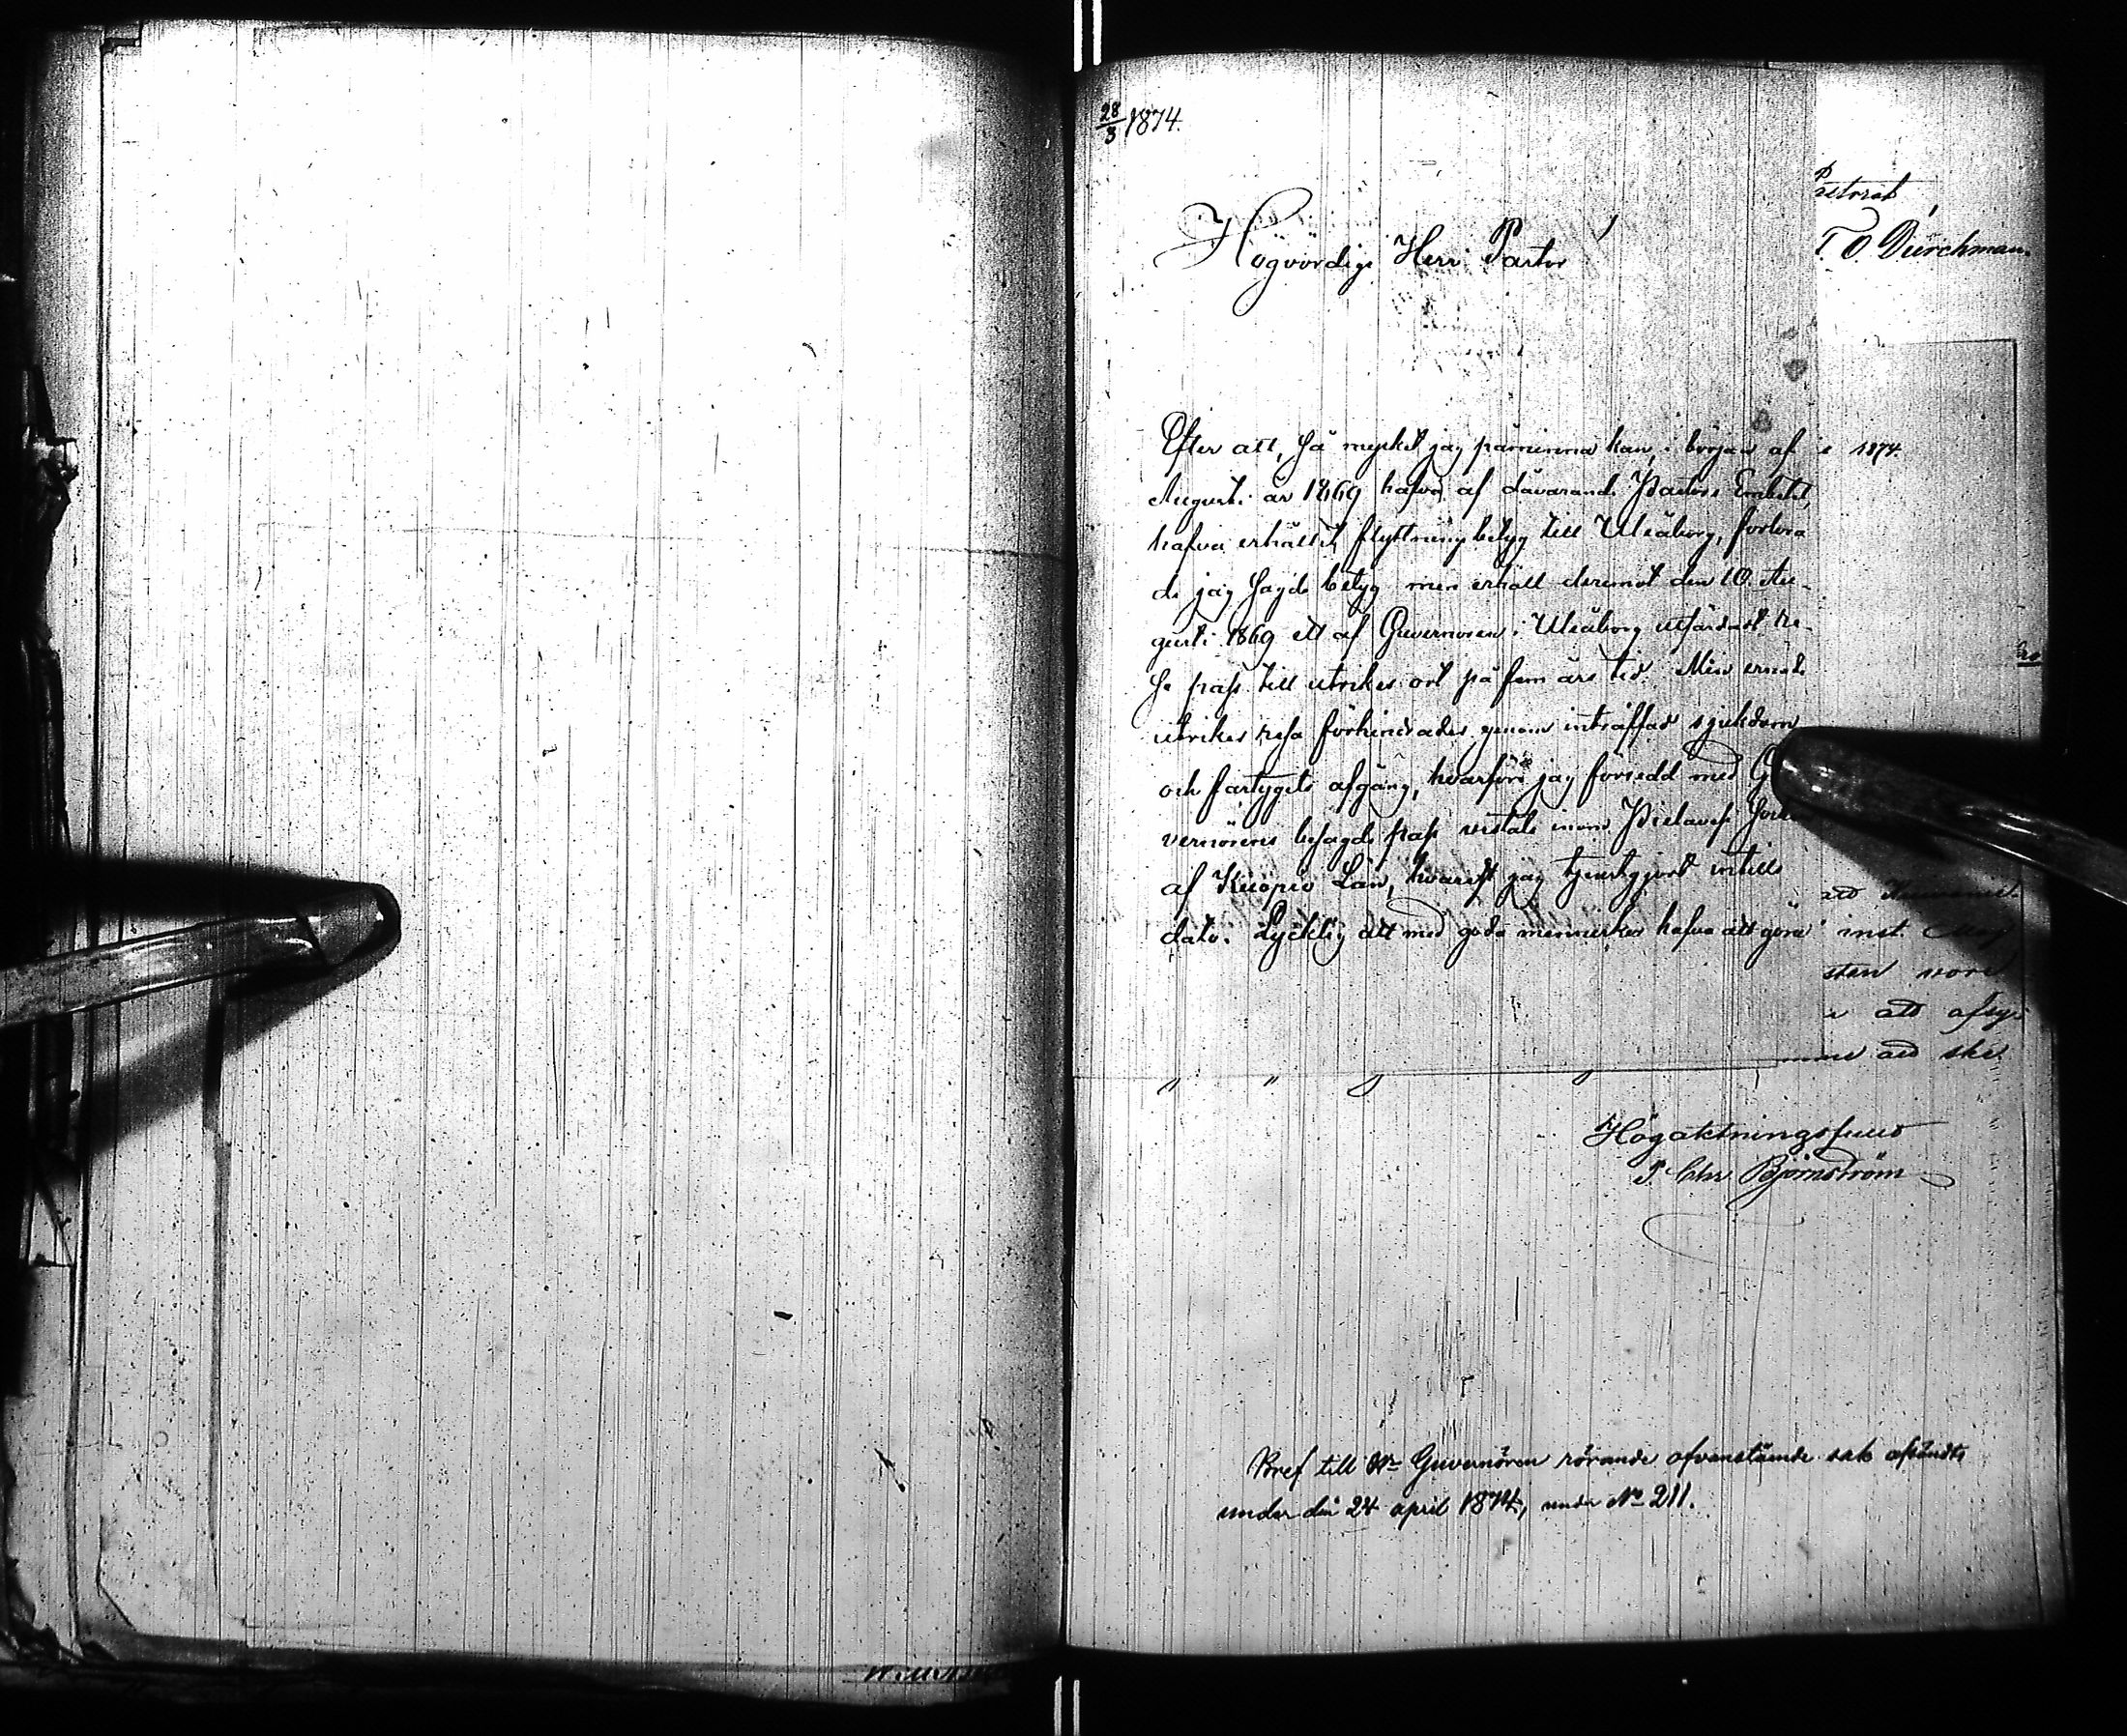 28/3 1874.
Högvördige Herr Pastor
Efter att, så mycket jag påminna kan, i början af
Augusti år 1869 hafva af dåvarande Pastors Embetet,
hafva erhållit flyttningsbetyg till Uleåborg, förlora
de jag sagde betyg men erhöll deremot den 10 Au-
gusti 1869 ett af Guvernoren i Uleåborg utfärdadt re-
se pass till utrikes ort på fem års tid. Min ernade
utrikes resa förhindrades genom inträffad sjukdom
och fartygets afgång, hvarföre jag försedd med G
vernörens besagde pass vistats inom Pielaves
af Kuopio Län, hvarest jag tjenstgjort intills
dato. Lycklig att med goda menniskor hafva att göra
Högaktningsfullt
P. Chr Björnström
Bref till Hr Guvernören rörande ofvanstående sak afsändts
under den 24 april 1874, under No 211.
storat
T. O. Durchman.
1874.
att
inst.
sten vore
att afsy
att ske